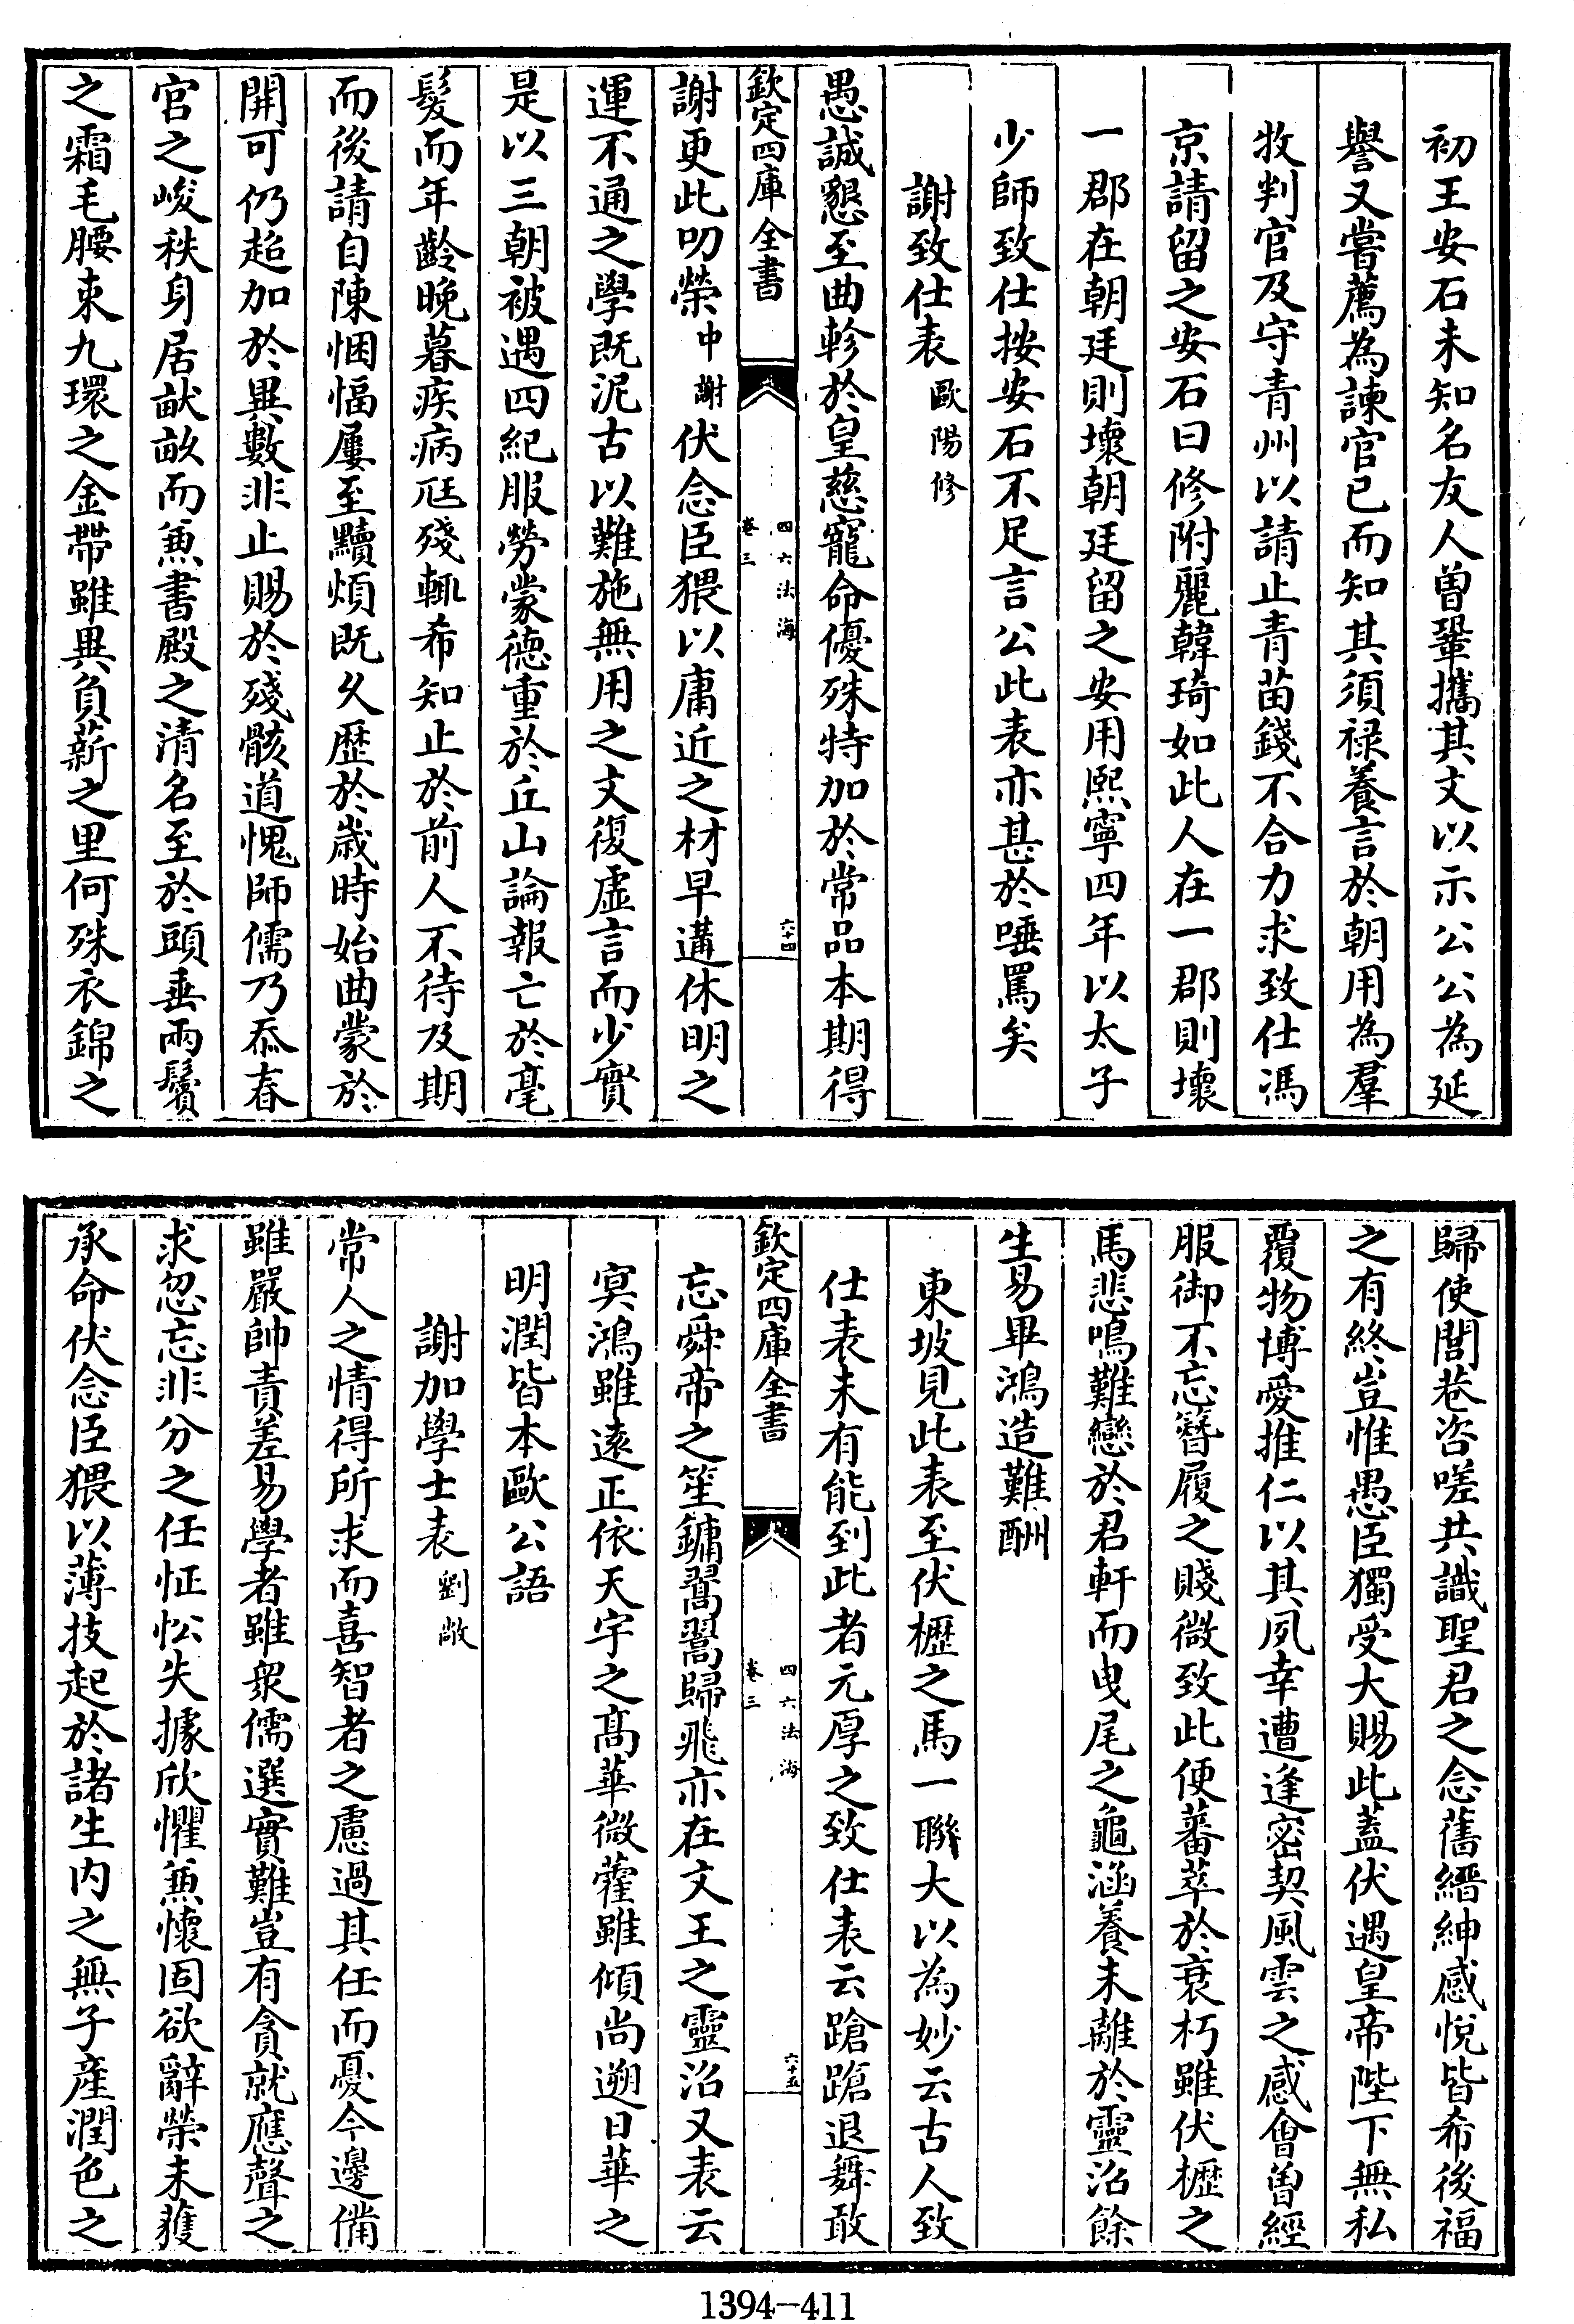 初王安石未知名友人曾鞏攜其文以示公公為延
譽又嘗薦為諫官已而知其須祿養言於朝用為羣
牧判官及守青州以請止青苗錢不合力求致仕馮
京請留之安石曰修附麗韓琦如此人在一郡則壞
一郡在朝廷則壞朝廷留之安用熙寧四年以太子
少師致仕按安石不足言公此表亦甚於唾罵矣
謝致仕表 歐陽修
愚誠懇至曲軫於皇慈寵命優殊特加於常品本期得
欽定四庫全書 四六法海 卷三 六十四
謝更此叨榮中謝伏念臣猥以庸近之材早遘休明之
運不通之學既泥古以難施無用之文復虛言而少實
是以三朝被遇四紀服勞蒙德重於丘山論報亡於毫
髮而年齡晚暮疾病尫殘輒希知止於前人不待及期
而後請自陳悃愊屢至黷煩既久歴於歲時始曲蒙於
開可仍超加於異數非止賜於殘骸道愧師儒乃忝春
官之峻秩身居畎畝而兼書殿之清名至於頭垂兩鬢
之霜毛腰束九環之金帶雖異負薪之里何殊衣錦之
歸使閭巷咨嗟共識聖君之念舊縉紳感悅皆希後福
之有終豈惟愚臣獨受大賜此蓋伏遇皇帝陛下無私
覆物博愛推仁以其夙幸遭逢密契風雲之感會曾經
服御不忘簪履之賤微致此便蕃萃於衰朽雖伏櫪之
馬悲鳴難戀於君軒而曳尾之龜涵養未離於靈沼餘
生易畢鴻造難酬
東坡見此表至伏櫪之馬一聯大以為妙云古人致
仕表未有能到此者元厚之致仕表云蹌蹌退舞敢
欽定四庫全書 四六法海 卷三 六十五
忘舜帝之笙鏞翯翯歸飛亦在文王之靈沼又表云
冥鴻雖遠正依天宇之高華微藿雖傾尚遡日華之
明潤皆本歐公語
謝加學士表 劉敞
常人之情得所求而喜智者之慮過其任而憂今邊備
雖嚴帥責差易學者雖衆儒選實難豈有貪就應聲之
求忽忘非分之任怔忪失據欣懼兼懷固欲辭榮未獲
承命伏念臣猥以薄技起於諸生内之無子産潤色之
1394-411